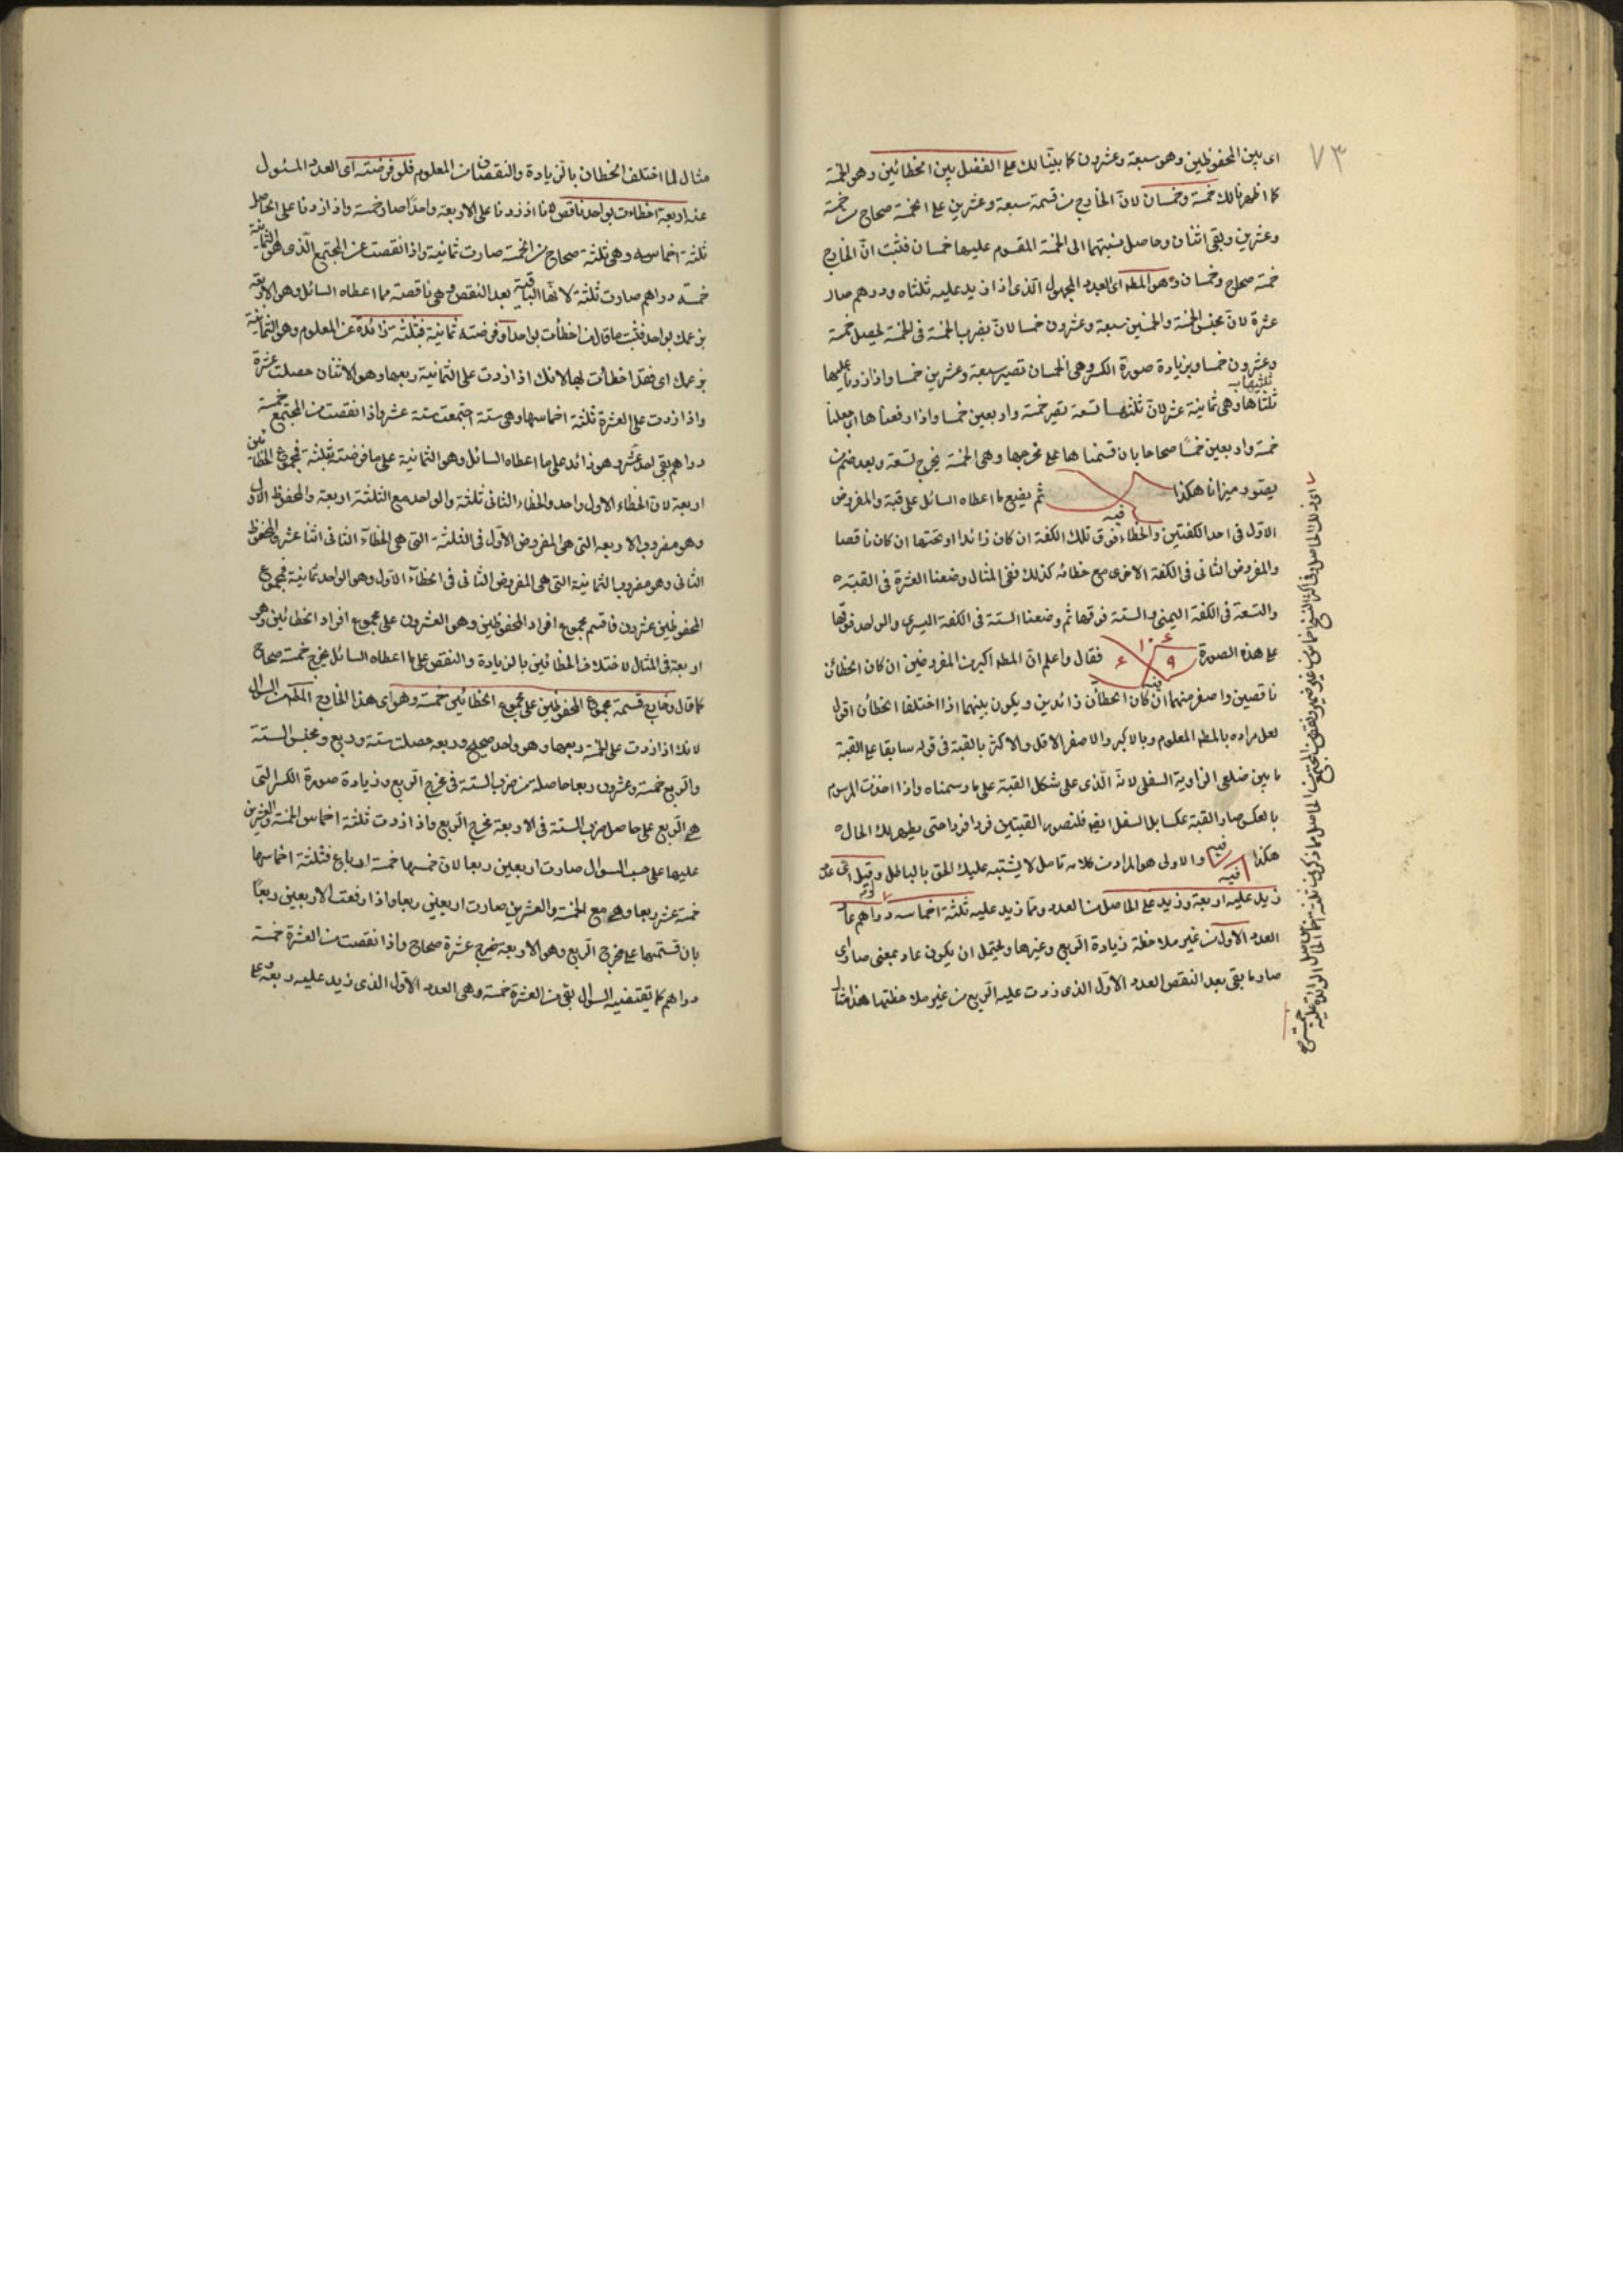 ٧٣
اى بين المحفوظين وهو سبعة وعشرون كما بيّنا لك على الفضل بين الخطائين وهو الخمسة
كما اظهرنا لك خمسة وخمسان لانّ الخارج من قسمة سبعة وعشرين على الخمسة صحاح من خمسة
وعشرين وبقى اثنان وحاصل نسبتهما الى الخمسة المقسوم عليها خمسان فثبت انّ الخارج
خمسة صحاح وخمسان وهو المط اى العدد المجهول الّذى اذا زيد عليه ثلثاه ودرهم صار
عشرة لانّ مجنس الخمسة والخمسين سبعة وعشرون خمسا لانّ بضرب الخمسة فى الخمسة يحصل خمسة
وعشرون خمسا وبزيادة صورة الكسر وهى الخمسان تصير سبعة وعشرين خمسا واذا زدنا عليها
ثلثاها وهى ثمانية عشر لانّ ثلثها تسعة تصير خمسة واربعين خمسا واذا رفعناها اى جعلنا
خمسة واربعين خمسًا صحاحا بان قسمناها على مخرجها وهى الخمسة يخرج تسعة وبعد ضم
يصور ميزانا هكذا ثم يضع ما اعطاه السائل على قبة والمفروض
قبه
الاوّل فى احد الكفتين والخطاء فوق تلك الكفة ان كان زائدا او تحتها ان كان ناقصا
والمفروض الثانى فى الكفة الاخرى مع خطائه كذلك ففى المثال وضعنا العشرة فى القبة
والتسعة فى الكفة اليمنى والستة فوقها ثم وضعنا الستة فى الكفة اليسرى والواحد فوقها
على هذه الصورة فقال واعلم انّ المط اكبر من المفروضين ان كان الخطائن
ناقصين واصغر منهما ان كان الخطائن زائدين ويكون بينهما اذا اختلفا الخطائن اقول
لعل مراده بالمط المعلوم وبالاكبر والاصغر الاقل والاكثر بالقبة فى قوله سابقا على القبة
ما بين ضلعى الزاوية السفلى لانه الّذى على شكل القبة على ما رسمناه واذا اخذت المرسوم
بالعكس صار القبة عكسا بل السفل ايضا فلتصور القبتين فردا فردا حتى يظهر لك الحال
هكذا قبه قبه والاولى هو المراد من كلامه تامل لا يشتبه عليك الحق بالباطل وقيل اى عدد
زيد عليه اربعة وزيد على الحاصل من العدد وما زيد عليه ثلثة اخماسه دراهم عا
العدد الاول من غير ملاحظة زيادة الربع وغيرها ويحتمل ان يكون عاد بمعنى صار اى
صار ما بقى بعد النقص العدد الاوّل الذى زدت عليه الربع من غير ملاحظتها هذا مثال
مثال لما اختلف الخطان بالزيادة والنقصان من المعلوم فلو فرضته اى العدد المسئول
عنه اربعة اخطاءت بواحد ناقص لانا اذ زدنا على الاربعة واحدًا صار خمسة واذا زدنا على الحاصل
ثلثة اخماسه وهى ثلثة صحاح من الخمسة صارت ثمانية واذا نقصت عن المجتمع الّذى هو الثمانية
خمسة دراهم صارت ثلثة لانها الباقية بعد النقص وهى ناقصة مما اعطاه السائل وهو الاربعة
بزعمك بواحد فثبت ما قال من اخطأت بواحد او فرضته ثمانية فبثلثة زائدة عن المعلوم وهو الثمانية
بزعمك اى فقد اخطأت بها لانك اذا زدت على الثمانية ربعها وهو الاثنان حصلت عشرة
واذا زدت على العشرة ثلثة اخماسها وهى ستة اجتمعت ستة عشر واذا نقصت من المجتمع خمسة
دراهم بقى احد عشر وهو زائد على ما اعطاه السائل وهو الثمانية على ما فرضته بثلثة فمجموع الخطائين
اربعة لان الخطاء الاول واحد والخطاء الثانى ثلثة والواحد مع الثلثة اربعة والمحفوظ الاول
وهو مضروب الاربعة التى هى المفروض الاوّل فى الثلثة التى هى الخطاء الثانى اثنا عشر والمحفوظ
الثانى وهو مضروب الثمانية التى هى المفروض الثانى فى الخطاء الاول وهو الواحد ثمانية فمجموع
المحفوظين عشرون فاقسم مجموع افراد المحفوظين وهو العشرون على مجموع افراد الخطائين وهو
اربعة فى المثال لاختلاف الخطائين بالزيادة والنقص على ما اعطاه السائل يخرج خمسة صحاح
كما قال وخارج قسمة مجموع المحفوظين على مجموع الخطائين خمسة وهو اى هذا الخارج المط من السوال
لانك اذا زدت على الخمسة ربعها وهو واحد صحيح وربعه حصلت ستة وربع ومجنس الستة
والربع خمسة وعشرون ربعا حاصلة من ضرب الستة فى مخرج الربع وزيادة صورة الكسر التى
هى الربع على حاصل ضرب الستة فى الاربعة مخرج الربع واذا زدت ثلثة اخماس الخمسة والعشرين
عليها على حسب السوال صارت اربعين ربعا لان خمسها خمسة ارباع فثلثة اخماسها
خمسة عشر ربعا وهى مع الخمسة والعشرين صارت اربعين ربعا واذا رفعت الاربعين ربعًا
بان قسمتها على مخرج الربع وهو الاربعة يخرج عشرة صحاح واذا نقصت من العشرة خمسة
دراهم كما تقتضيه السوال بقى من العشرة خمسة وهى العدد الاوّل الذى زيد عليه ربعه على